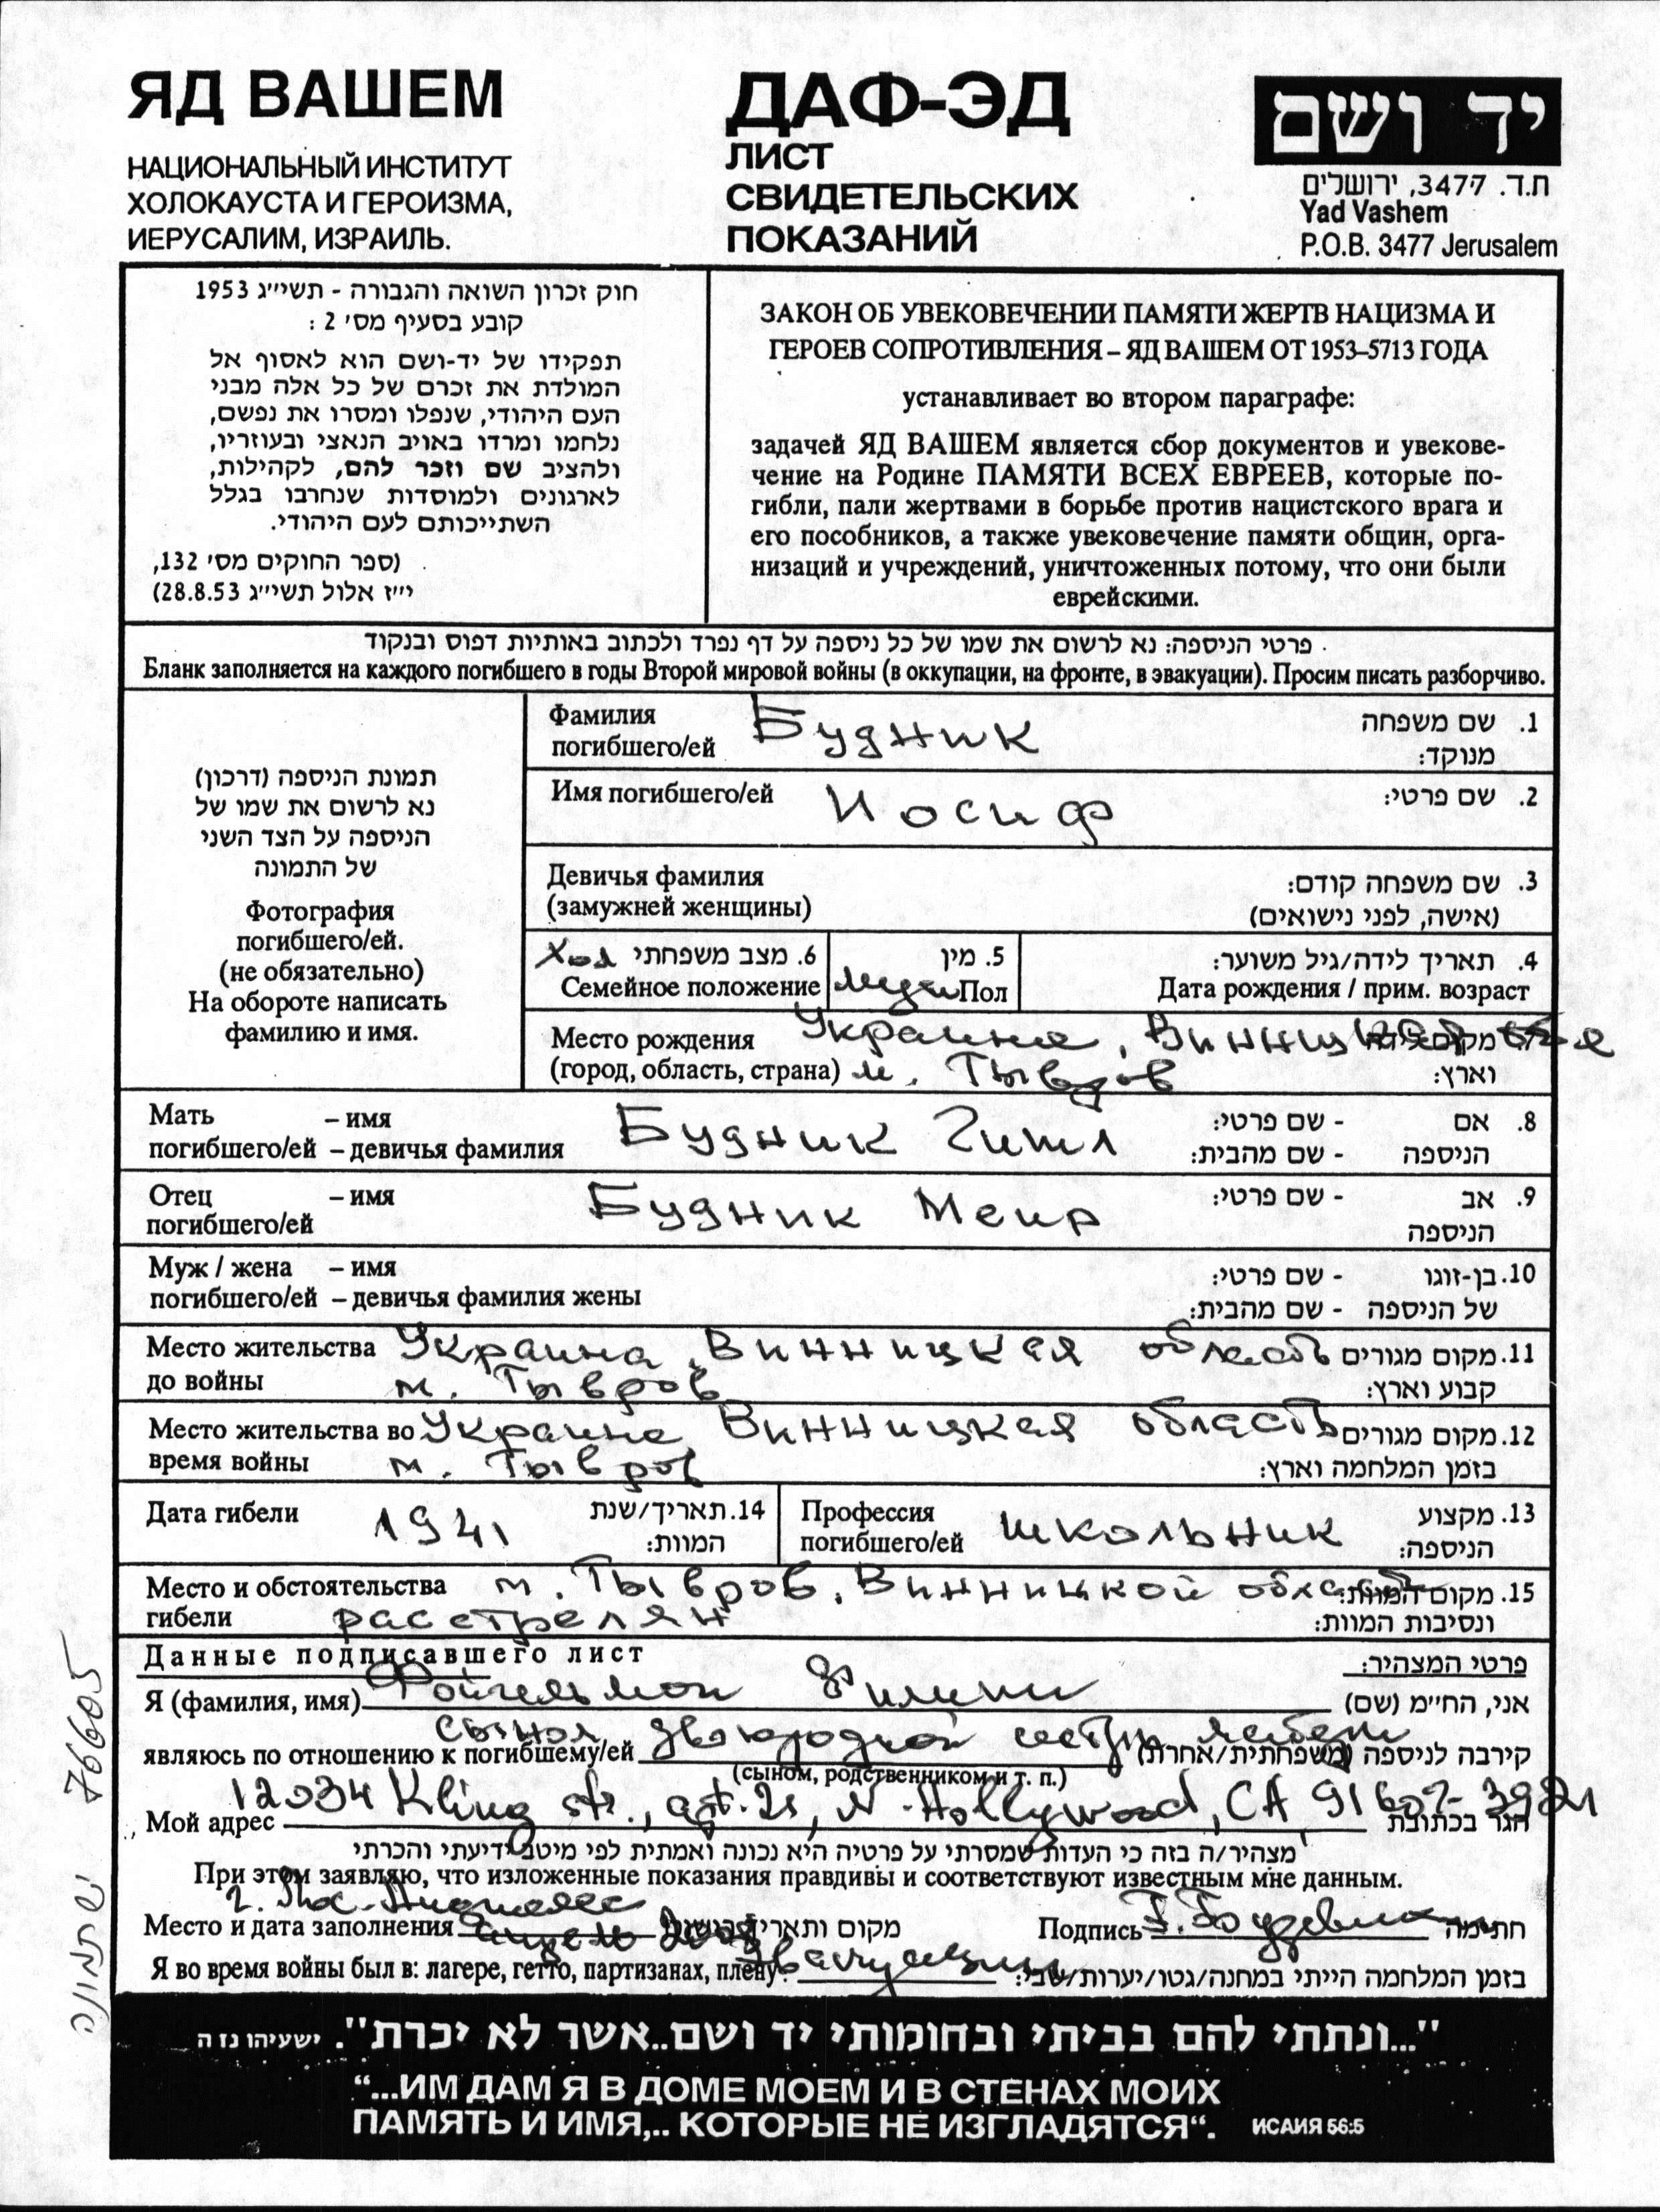 ЯД ВАШЕМ
НАЦИОНАЛЬНЫЙ ИНСТИТУТ
ХОЛОКАУСТА И ГЕРОИЗМА,
ИЕРУСАЛИМ, ИЗРАИЛЬ.
ДАФ-ЭД
ЛИСТ
СВИДЕТЕЛЬСКИХ
ПОКАЗАНИЙ
יד ושם
ת.ד. 3477, ירושלים
Yad Vashem
P.O.B. 3477 Jerusalem
חוק זכרון השואה והגבורה - תשי״ג 1953
קובע בסעיף מס׳ 2 :
תפקידו של יד-ושם הוא לאסוף אל
המולדת את זכרם של כל אלה מבני
העם היהודי, שנפלו ומסרו את נפשם,
נלחמו ומרדו באויב הנאצי ובעוזריו,
ולהציב שם וזכר להם, לקהילות,
לארגונים ולמוסדות שנחרבו בגלל
השתייכותם לעם היהודי.
(ספר החוקים מס׳ 132,
י״ז אלול תשי״ג 28.8.53)
ЗАКОН ОБ УВЕКОВЕЧЕНИИ ПАМЯТИ ЖЕРТВ НАЦИЗМА И
ГЕРОЕВ СОПРОТИВЛЕНИЯ – ЯД ВАШЕМ ОТ 1953–5713 ГОДА
устанавливает во втором параграфе:
задачей ЯД ВАШЕМ является сбор документов и увекове-
чение на Родине ПАМЯТИ ВСЕХ ЕВРЕЕВ, которые по-
гибли, пали жертвами в борьбе против нацистского врага и
его пособников, а также увековечение памяти общин, орга-
низаций и учреждений, уничтоженных потому, что они были
еврейскими.
פרטי הניספה: נא לרשום את שמו של כל ניספה על דף נפרד ולכתוב באותיות דפוס ובנקוד
Бланк заполняется на каждого погибшего в годы Второй мировой войны (в оккупации, на фронте, в эвакуации). Просим писать разборчиво.
תמונת הניספה (דרכון)
נא לרשום את שמו של
הניספה על הצד השני
של התמונה
Фотография
погибшего/ей.
(не обязательно)
На обороте написать
фамилию и имя.
Фамилия Будник 1. שם משפחה
погибшего/ей מנוקד:
Имя погибшего/ей Иосиф 2. שם פרטי:
Девичья фамилия 3. שם משפחה קודם:
(замужней женщины) (אישה, לפני נישואים)
Хол 6. מצב משפחתי 5. מין 4. תאריך לידה/גיל משוער:
Семейное положение муж Пол Дата рождения / прим. возраст
Место рождения Украина, Винницкая обл מקום
(город, область, страна) м. Тывров וארץ:
Мать – имя Будник Гитл 8. אם - שם פרטי:
погибшего/ей – девичья фамилия הניספה - שם מהבית:
Отец – имя Будник Меир 9. אב - שם פרטי:
погибшего/ей הניספה
Муж / жена – имя 10. בן-זוגו - שם פרטי:
погибшего/ей – девичья фамилия жены של הניספה - שם מהבית:
Место жительства Украина, Винницкая область 11. מקום מגורים
до войны м. Тывров קבוע וארץ:
Место жительства во Украина, Винницкая область 12. מקום מגורים
время войны м. Тывров בזמן המלחמה וארץ:
Дата гибели 1941 14. תאריך/שנת Профессия школьник 13. מקצוע
המוות: погибшего/ей הניספה:
Место и обстоятельства м. Тывров, Винницкой области 15. מקום המוות:
гибели расстрелян ונסיבות המוות:
Данные подписавшего лист פרטי המצהיר:
Я (фамилия, имя) Филипп אני, החי״מ (שם)
сыном двоюродной сестры
являюсь по отношению к погибшему/ей קירבה לניספה (משפחתית/אחרת)
(сыном, родственником и т. п.)
12034 Kling str., apt. 21, N. Hollywood, CA 91607-3921
Мой адрес הגר בכתובת
מצהיר/ה בזה כי העדות שמסרתי על פרטיה היא נכונה ואמתית לפי מיטב ידיעתי והכרתי
При этом заявляю, что изложенные показания правдивы и соответствуют известным мне данным.
г. Лос-Анджелес
Место и дата заполнения מקום ותאריך Подпись חתימה
Я во время войны был в: лагере, гетто, партизанах, плену: בזמן המלחמה הייתי במחנה/גטו/יערות/שבי:
76605
יש תמונה
"...ונתתי להם בביתי ובחומותי יד ושם..אשר לא יכרת". ישעיהו נז ה
“...ИМ ДАМ Я В ДОМЕ МОЕМ И В СТЕНАХ МОИХ
ПАМЯТЬ И ИМЯ,.. КОТОРЫЕ НЕ ИЗГЛАДЯТСЯ“. ИСАИЯ 56:5